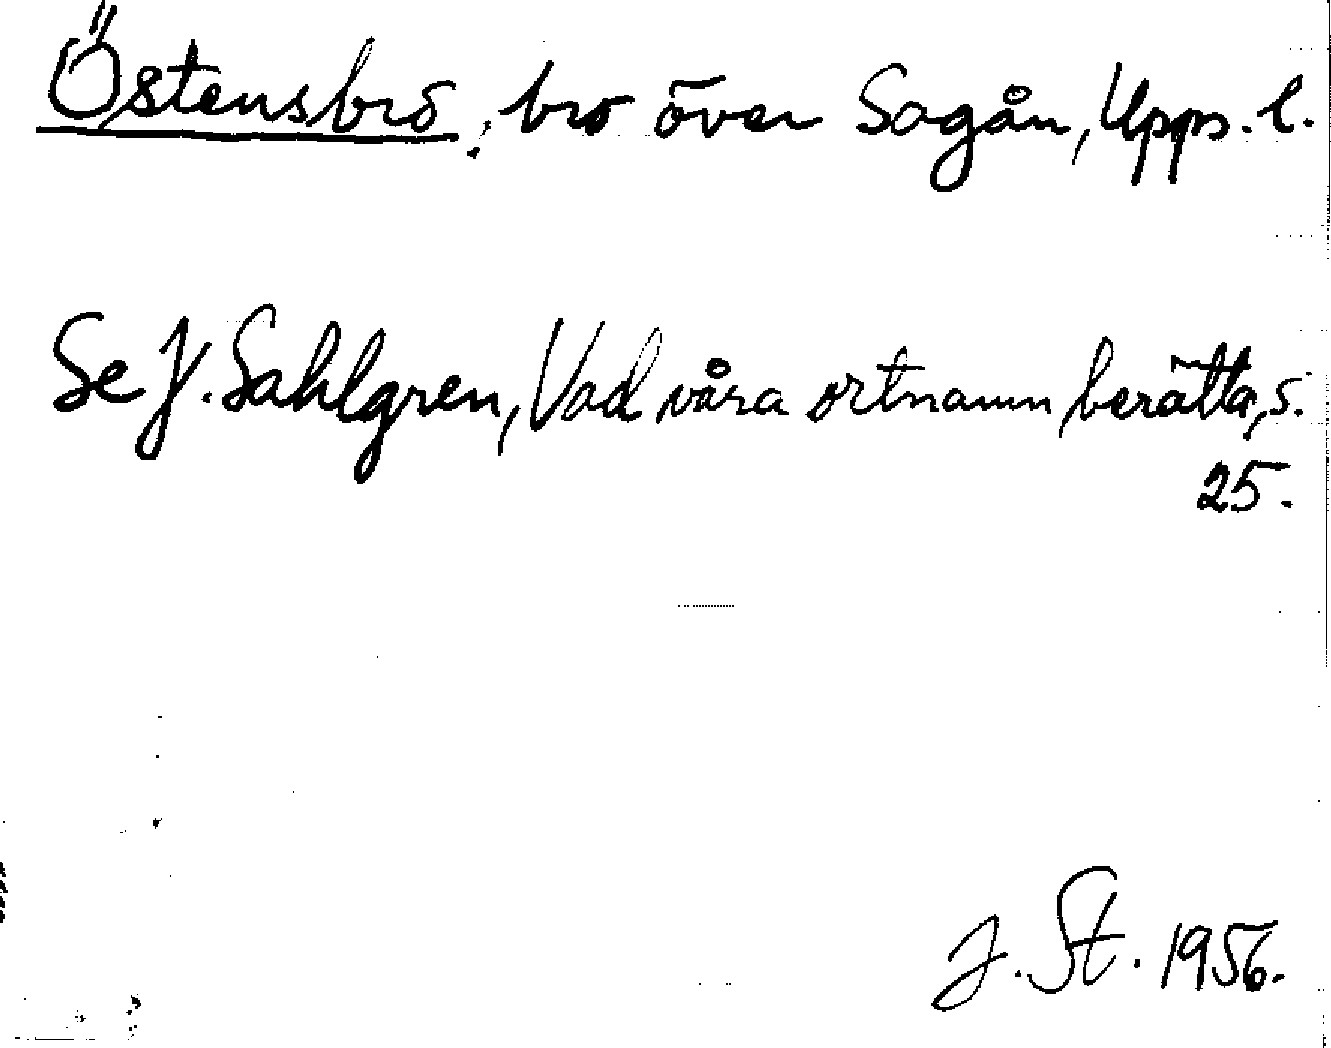 Östensbro, bro över Sagån, Upps. l.
Se J. Sahlgren, Vad våra ortnamn berätta, s.
25.
J. St. 1956.